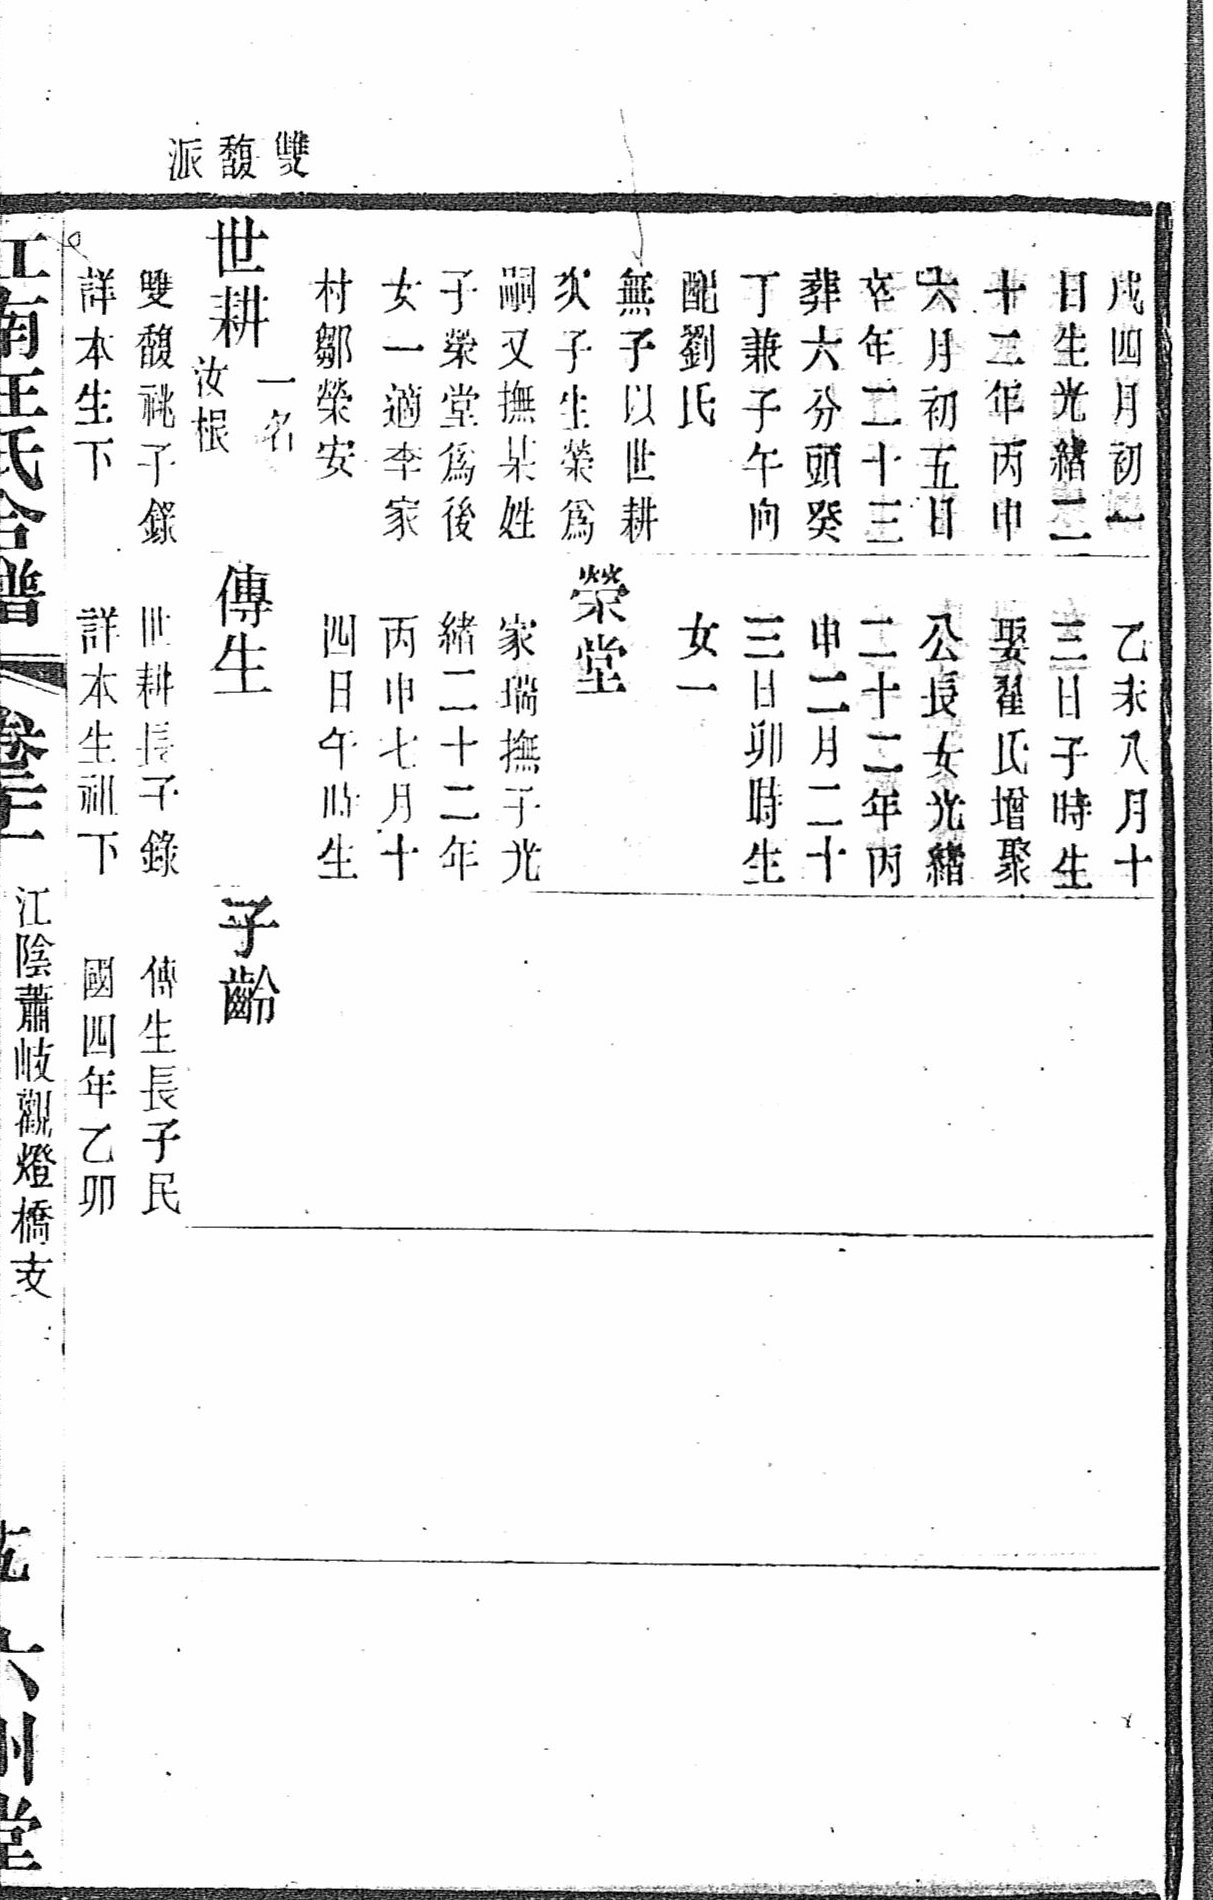 雙馥派
戌四月初一
日生光緒二
十二年丙申
六月初五日
卒年二十三
葬六分頭癸
丁兼子午向
配劉氏
無子以世耕
次子生榮爲
嗣又撫某姓
子榮堂爲後
女一適李家
村鄒榮安
世耕
一名
汝根
雙馥祧子錄
詳本生下
乙未八月十
三日子時生
娶翟氏增聚
公長女光緒
二十二年丙
申二月二十
三日卯時生
女一
榮堂
家瑞撫子光
緒二十二年
丙申七月十
四日午時生
傳生
世耕長子錄
詳本生祖下
子齡
傳生長子民
國四年乙卯
江陰蕭岐觀燈橋支